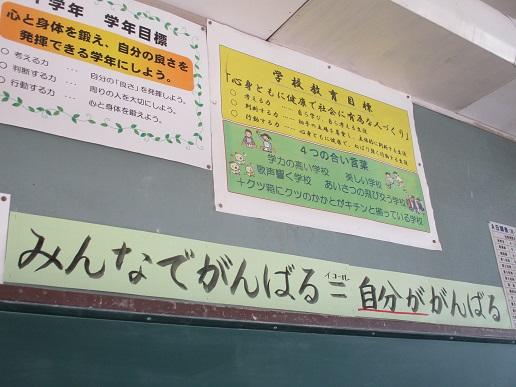 学年 学年目標
心と身体を鍛え、自分の良さを
発揮できる学年にしよう。
○ 考える力 … 自分の「良さ」を発揮しよう。
○ 判断する力 … 周りの人を大切にしよう。
○ 行動する力 … 心と身体を鍛えよう。
学校教育目標
「心身ともに健康で社会に有為な人づくり」
○ 考える力 … 自ら学び、自ら考える生徒
○ 判断する力
○ 行動する力
4つの合い言葉
学力の高い学校 美しい学校
歌声響く学校 あいさつの飛び交う学校
+クツ箱にクツのかかとがキチンと揃っている学校
みんなでがんばる=自分ががんばる
イコール